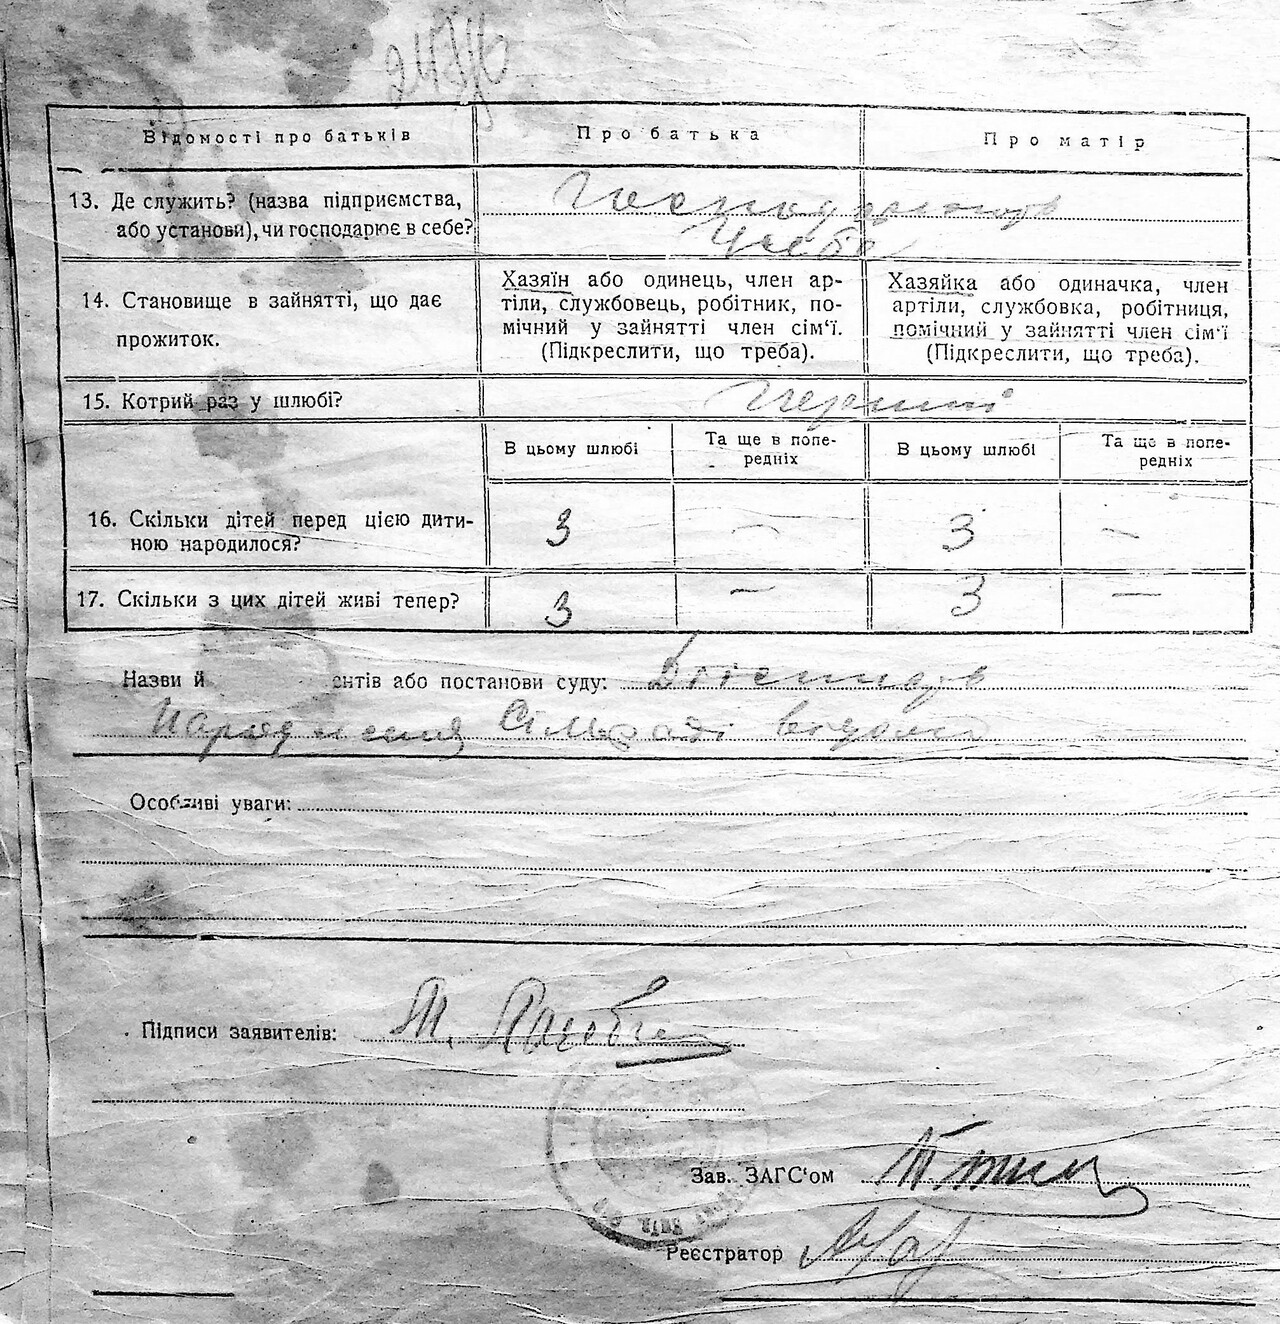 Відомості про батьків
Про батька
Про матір
13. Де служить? (назва підприємства,
або установи), чи господарює в себе?
Господарюють
14. Становище в зайнятті, що дає
прожиток.
Хазяїн або одинець, член ар-
тіли, службовець, робітник, по-
мічний у зайнятті член сім'ї.
(Підкреслити, що треба).
Хазяйка або одиначка, член
артіли, службовка, робітниця,
помічний у зайнятті член сім'ї
(Підкреслити, що треба).
15. Котрий раз у шлюбі?
В цьому шлюбі
Та ще в попе-
редніх
В цьому шлюбі
Та ще в попе-
редніх
16. Скільки дітей перед цією дити-
ною народилося?
3
—
3
—
17. Скільки з цих дітей живі тепер?
3
—
3
—
Назви й
ентів або постанови суду:
народження Сільраді відомо
Особливі уваги:
Підписи заявителів:
Зав. ЗАГС'ом
Реєстратор